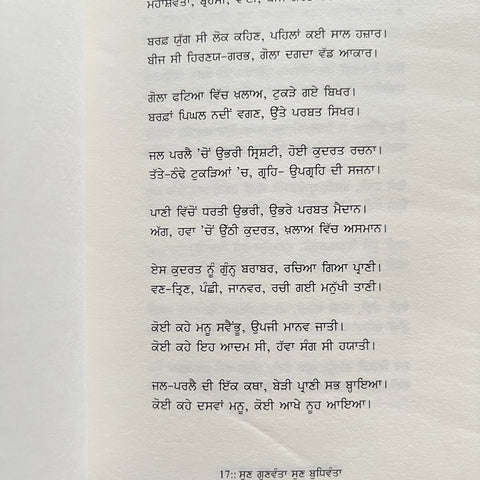 ਮਹਾਸ਼ਵੇਤਾ,
ਬਰਫ਼ ਯੁੱਗ ਸੀ ਲੋਕ ਕਹਿਣ, ਪਹਿਲਾਂ ਕਈ ਸਾਲ ਹਜ਼ਾਰ।
ਬੀਜ ਸੀ ਹਿਰਣਯ-ਗਰਭ, ਗੋਲਾ ਦਗਦਾ ਵੱਡ ਆਕਾਰ।
ਗੋਲਾ ਫਟਿਆ ਵਿੱਚ ਖ਼ਲਾਅ, ਟੁਕੜੇ ਗਏ ਬਿਖਰ।
ਬਰਫ਼ਾਂ ਪਿਘਲ ਨਦੀਂ ਵਗਣ, ਉੱਤੇ ਪਰਬਤ ਸਿਖਰ।
ਜਲ ਪਰਲੈ ’ਚੋਂ ਉਭਰੀ ਸ੍ਰਿਸ਼ਟੀ, ਹੋਈ ਕੁਦਰਤ ਰਚਨਾ।
ਤੱਤੇ-ਠੰਢੇ ਟੁਕੜਿਆਂ ’ਚ, ਗ੍ਰਹਿ- ਉਪਗ੍ਰਹਿ ਦੀ ਸਜਨਾ।
ਪਾਣੀ ਵਿੱਚੋਂ ਧਰਤੀ ਉਭਰੀ, ਉਭਰੇ ਪਰਬਤ ਮੈਦਾਨ।
ਅੱਗ, ਹਵਾ ’ਚੋਂ ਉੱਠੀ ਕੁਦਰਤ, ਖ਼ਲਾਅ ਵਿੱਚ ਅਸਮਾਨ।
ਏਸ ਕੁਦਰਤ ਨੂੰ ਗੁੰਨ੍ਹ ਬਰਾਬਰ, ਰਚਿਆ ਗਿਆ ਪ੍ਰਾਣੀ।
ਵਣ-ਤ੍ਰਿਣ, ਪੰਛੀ, ਜਾਨਵਰ, ਰਚੀ ਗਈ ਮਨੁੱਖੀ ਤਾਣੀ।
ਕੋਈ ਕਹੇ ਮਨੂ ਸਵੈਂਭੂ, ਉਪਜੀ ਮਾਨਵ ਜਾਤੀ।
ਕੋਈ ਕਹੇ ਇਹ ਆਦਮ ਸੀ, ਹੱਵਾ ਸੰਗ ਸੀ ਹਯਾਤੀ।
ਜਲ-ਪਰਲੈ ਦੀ ਇੱਕ ਕਥਾ, ਬੇੜੀ ਪ੍ਰਾਣੀ ਸਭ ਬ੍ਹਾਇਆ।
ਕੋਈ ਕਹੇ ਦਸਵਾਂ ਮਨੂ, ਕੋਈ ਆਖੇ ਨੂਹ ਆਇਆ।
17:: ਸੁਣ ਗੁਣਵੰਤਾ ਸੁਣ ਬੁਧਿਵੰਤਾ